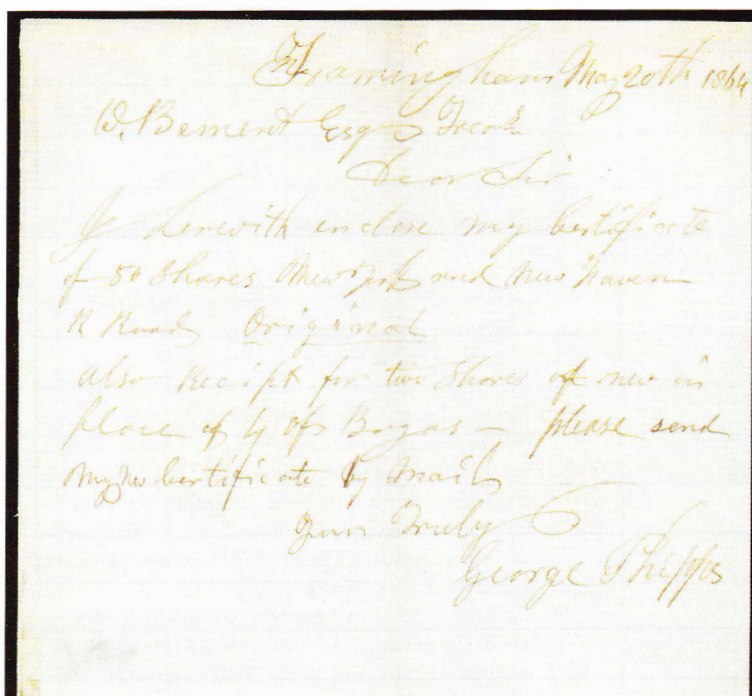 Framingham May 20th 1864
W. Bement Esq Treas
Dear Sir
I herewith enclose my Certificate
of 50 Shares New York and New Haven
R Road Original
also Receipt for two Shares of new in
place of 4 of Bogus — please send
my New Certificate by Mail
Yours Truly
George Phipps